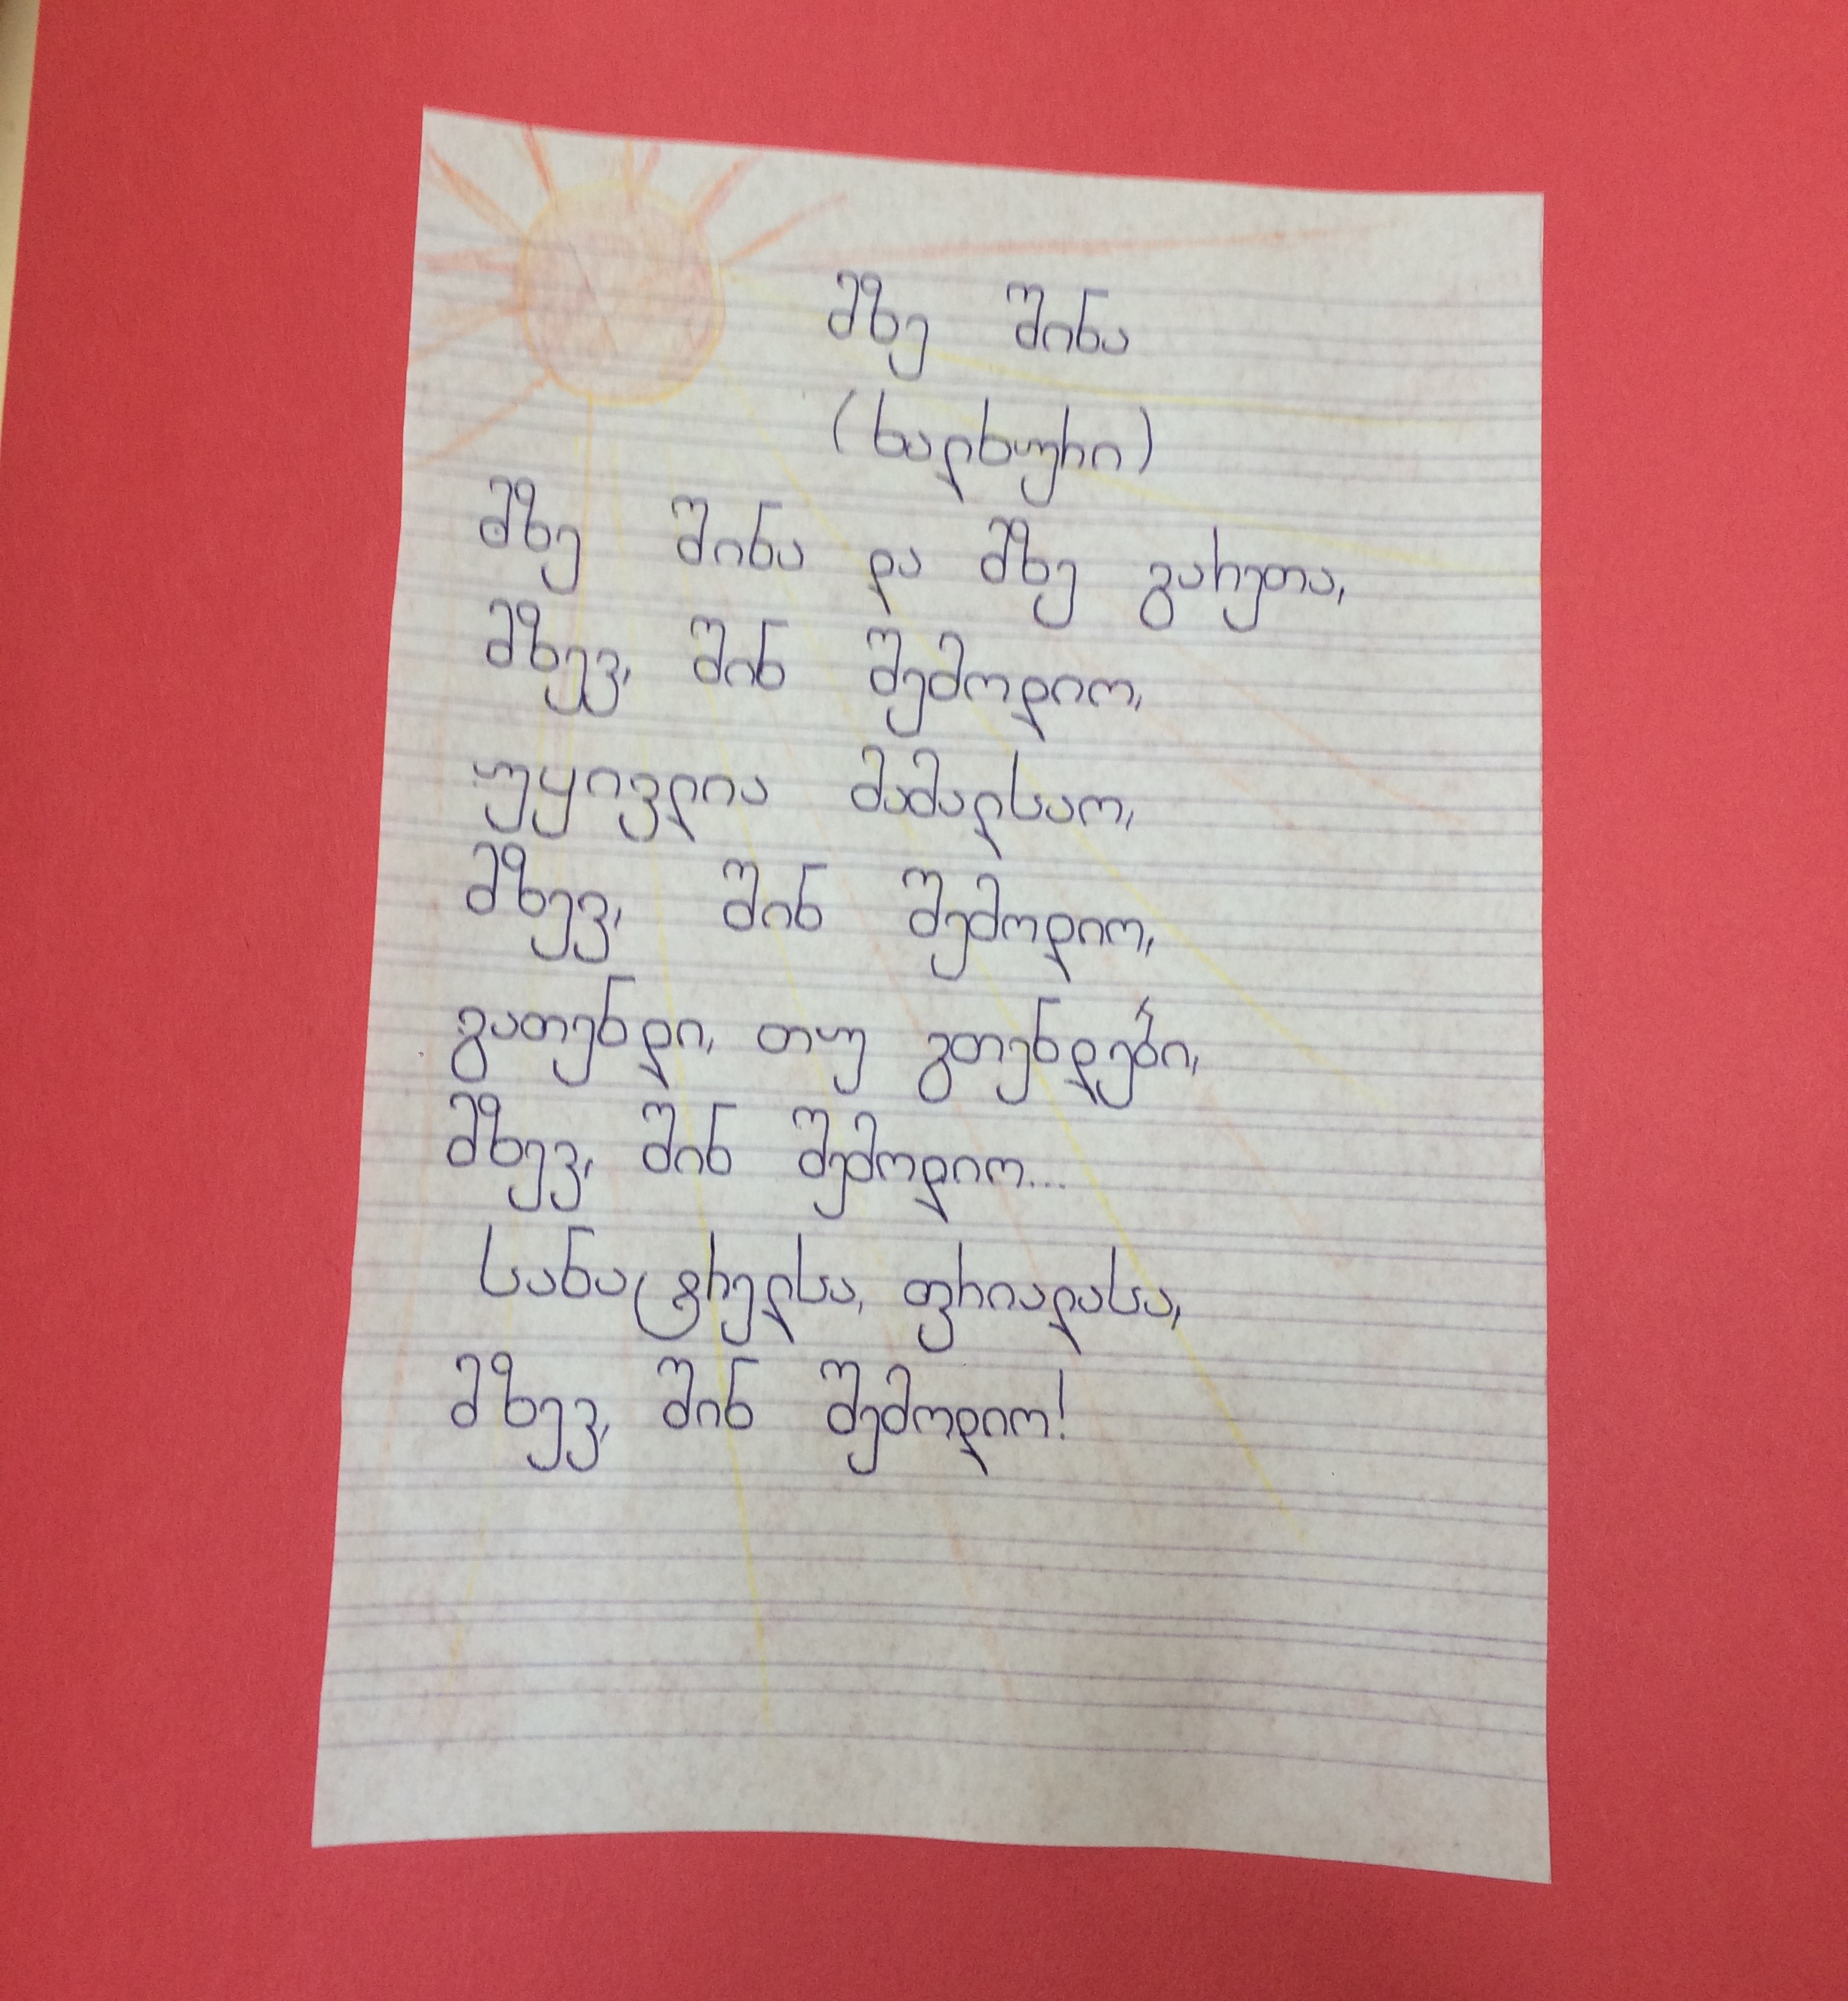 მზე შინა
(ხალხური)
მზე შინა და მზე გარეთა,
მზევ, შინ შემოდიო,
უყივლია მამალსაო,
მზევ, შინ შემოდიო,
გათენდი, თუ გთენდები,
მზევ, შინ შემოდიო...
სანატრელსა, ფრიადასა,
მზევ, შინ შემოდიო!